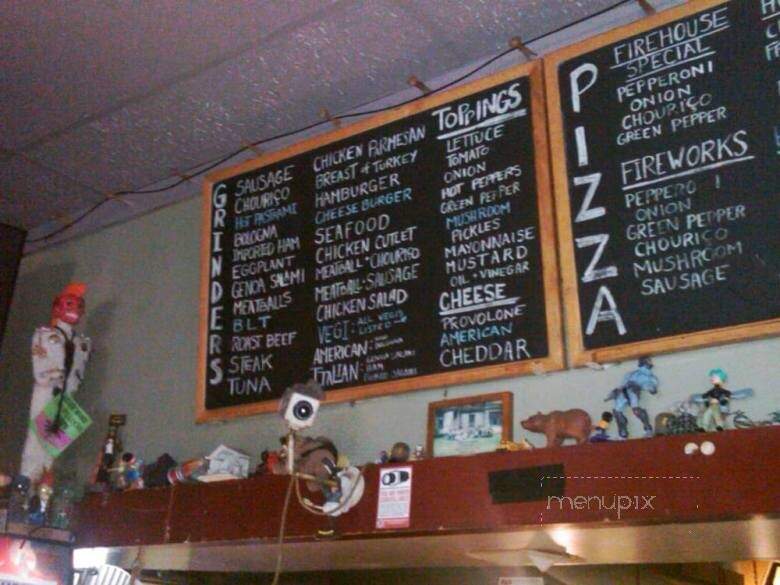 GRINDERS
SAUSAGE
CHOURIÇO
HOT PASTRAMI
BOLOGNA
IMPORTED HAM
EGGPLANT
GENOA SALAMI
MEATBALLS
BLT
ROAST BEEF
STEAK
TUNA
CHICKEN PARMESAN
BREAST OF TURKEY
HAMBURGER
CHEESE BURGER
SEAFOOD
CHICKEN CUTLET
MEATBALL • CHOURIÇO
MEATBALL • SAUSAGE
CHICKEN SALAD
VEGI: ALL VEGIS
LISTED
AMERICAN: HAM
BOLOGNA
ITALIAN: GENOA SALAMI
HAM
TOPPINGS
LETTUCE
TOMATO
ONION
HOT PEPPERS
GREEN PEPPER
MUSHROOM
PICKLES
MAYONNAISE
MUSTARD
OIL • VINEGAR
CHEESE
PROVOLONE
AMERICAN
CHEDDAR
PIZZA
FIREHOUSE
SPECIAL
PEPPERONI
ONION
CHOURIÇO
GREEN PEPPER
FIREWORKS
PEPPERO I
ONION
GREEN PEPPER
CHOURICO
MUSHROOM
SAUSAGE
menupix